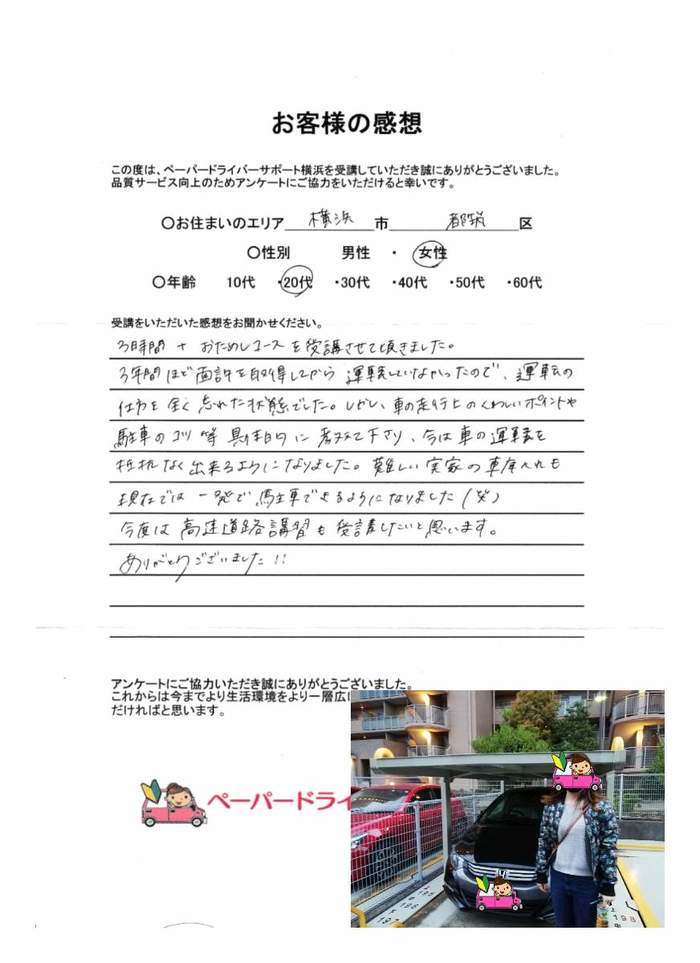 お客様の感想
この度は、ペーパードライバーサポート横浜を受講していただき誠にありがとうございました。
品質サービス向上のためアンケートにご協力をいただけると幸いです。
〇お住まいのエリア 横浜 市 都筑 区
〇性別 男性 ・ 女性
〇年齢 10代 ・20代 ・30代 ・40代 ・50代 ・60代
受講をいただいた感想をお聞かせください。
3時間 + おためしコースを受講させて頂きました。
3年間ほど免許を取得してから 運転していなかったので、運転の
仕方を全く忘れた状態でした。しかし、車の走行上のくわしいポイントや
駐車のコツ等 具体的に 教えて下さり、今は車の運転を
抵抗なく出来るようになりました。難しい実家の車庫入れも
現在では 一発で 駐車できるようになりました(笑)
今度は 高速道路講習も受講したいと思います。
ありがとうございました!!
アンケートにご協力いただき誠にありがとうございました。
これからは今までより生活環境をより一層広げ
だければと思います。
ペーパードライ
198